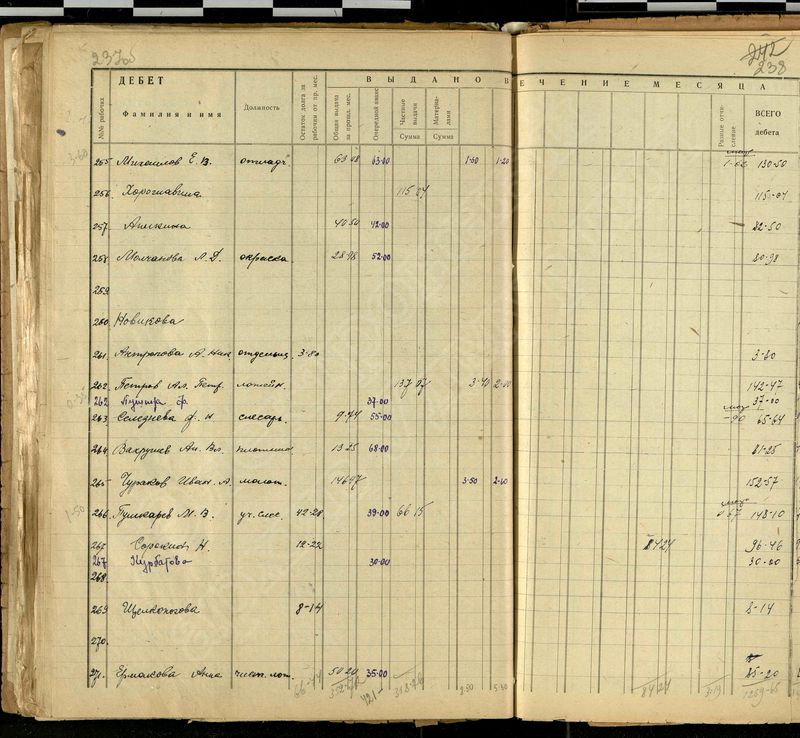 237об
242
238
ДЕБЕТ
ВЫДАНО В ТЕЧЕНИЕ МЕСЯЦА
№№ рабочих
Фамилия и имя
Должность
Остаток долга за рабочим от пр. мес.
Общая выдача за прошл. мес.
Очередной аванс
Частные выдачи
Сумма
Материалами
Сумма
Разные отчисление
ВСЕГО дебета
255 Михайлов Е. В. 63 08 63-00 1-60 1-20 130-50
256 115 07 115-07
257 Аникина 40 50 42-00 82-50
258 Молчанова А. Д. окраска 28-98 52-00 80-98
259
260 Новикова
261 Антропова А. Ник 3-60 3-60
262 Петров Ал. Петр. 137 07 3-40 2-00 142-47
262 37-00 37-00
263 Селеднева слесарь 9-74 55-00 -90 65-64
264 Вахрушев Ан. Вл. 13 25 68-00 81-25
265 Чураков Иван А. молот. 146 47 3-50 2-60 152-57
266 Пушкарев М. В. уч. слес. 42-28 39-00 66 15 67 148-10
267 Сорокин Н. 12-22 84 24 96-46
267 Курбатова 30-00 30-00
268
269 Щелконогова 8-14 8-14
270.
271. Ермакова Анна чист. лот. 50 20 35-00 85-20
421- 318-26 9.50 84 24 3.19 1259-65